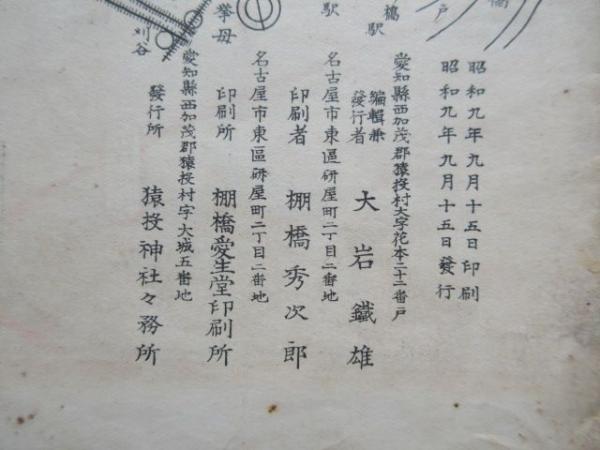 昭和九年九月十五日印刷
昭和九年九月十五日發行
愛知縣西加茂郡猿投村大字花本二十二番戸
編輯兼
發行者 大岩鐵雄
名古屋市東區研屋町二丁目二番地
印刷者 棚橋秀次郎
名古屋市東區研屋町二丁目二番地
印刷所 棚橋愛生堂印刷所
愛知縣西加茂郡猿投村字大城五番地
發行所 猿投神社々務所
戸
橋
駅
駅
挙母
刈谷